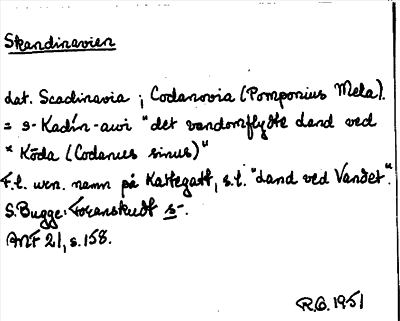 Skandinavien
Lat. Scadinavia ; Codanovia (Pomponius Mela).
= s-Kadín-awi "det vandomflydte Land ved
* Kōda (Codanus sinus)"
F.t. urn. namn på Kattegatt, s.t. "Land ved Vandet".
S. Bugge: Foranskudt s-.
ANF 21, s. 158.
R.G. 1951